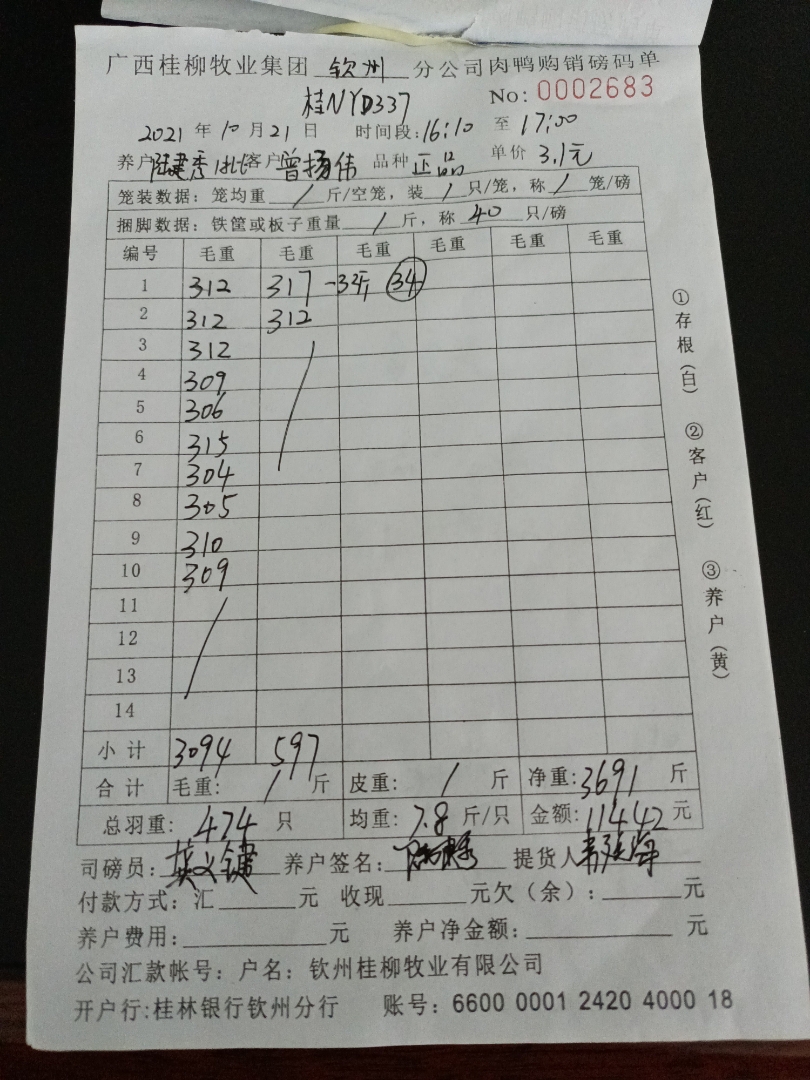 广西桂柳牧业集团 钦州 分公司肉鸭购销磅码单
桂NYD337 No: 0002683
2021 年 10 月 21 日 时间段: 16:10 至 17:00
养户 陆建秀 1批 客户 曾扬伟 品种 正品 单价 3.1元
笼装数据: 笼均重 / 斤/空笼, 装 / 只/笼, 称 / 笼/磅
捆脚数据: 铁筐或板子重量 / 斤, 称 40 只/磅
编号 毛重 毛重 毛重 毛重 毛重 毛重
1 312 317 -3斤 34
2 312 312
3 312 /
4 309
5 306
6 315
7 304
8 305
9 310
10 309
11 /
12
13
14
小计 3094 597
合计 毛重: / 斤 皮重: / 斤 净重: 3691 斤
总羽重: 474 只 均重: 7.8 斤/只 金额: 11442 元
司磅员: 养户签名: 提货人
付款方式: 汇 元 收现 元欠(余): 元
养户费用: 元 养户净金额: 元
公司汇款帐号: 户名: 钦州桂柳牧业有限公司
开户行:桂林银行钦州分行 账号: 6600 0001 2420 4000 18
①存根(白) ②客户(红) ③养户(黄)